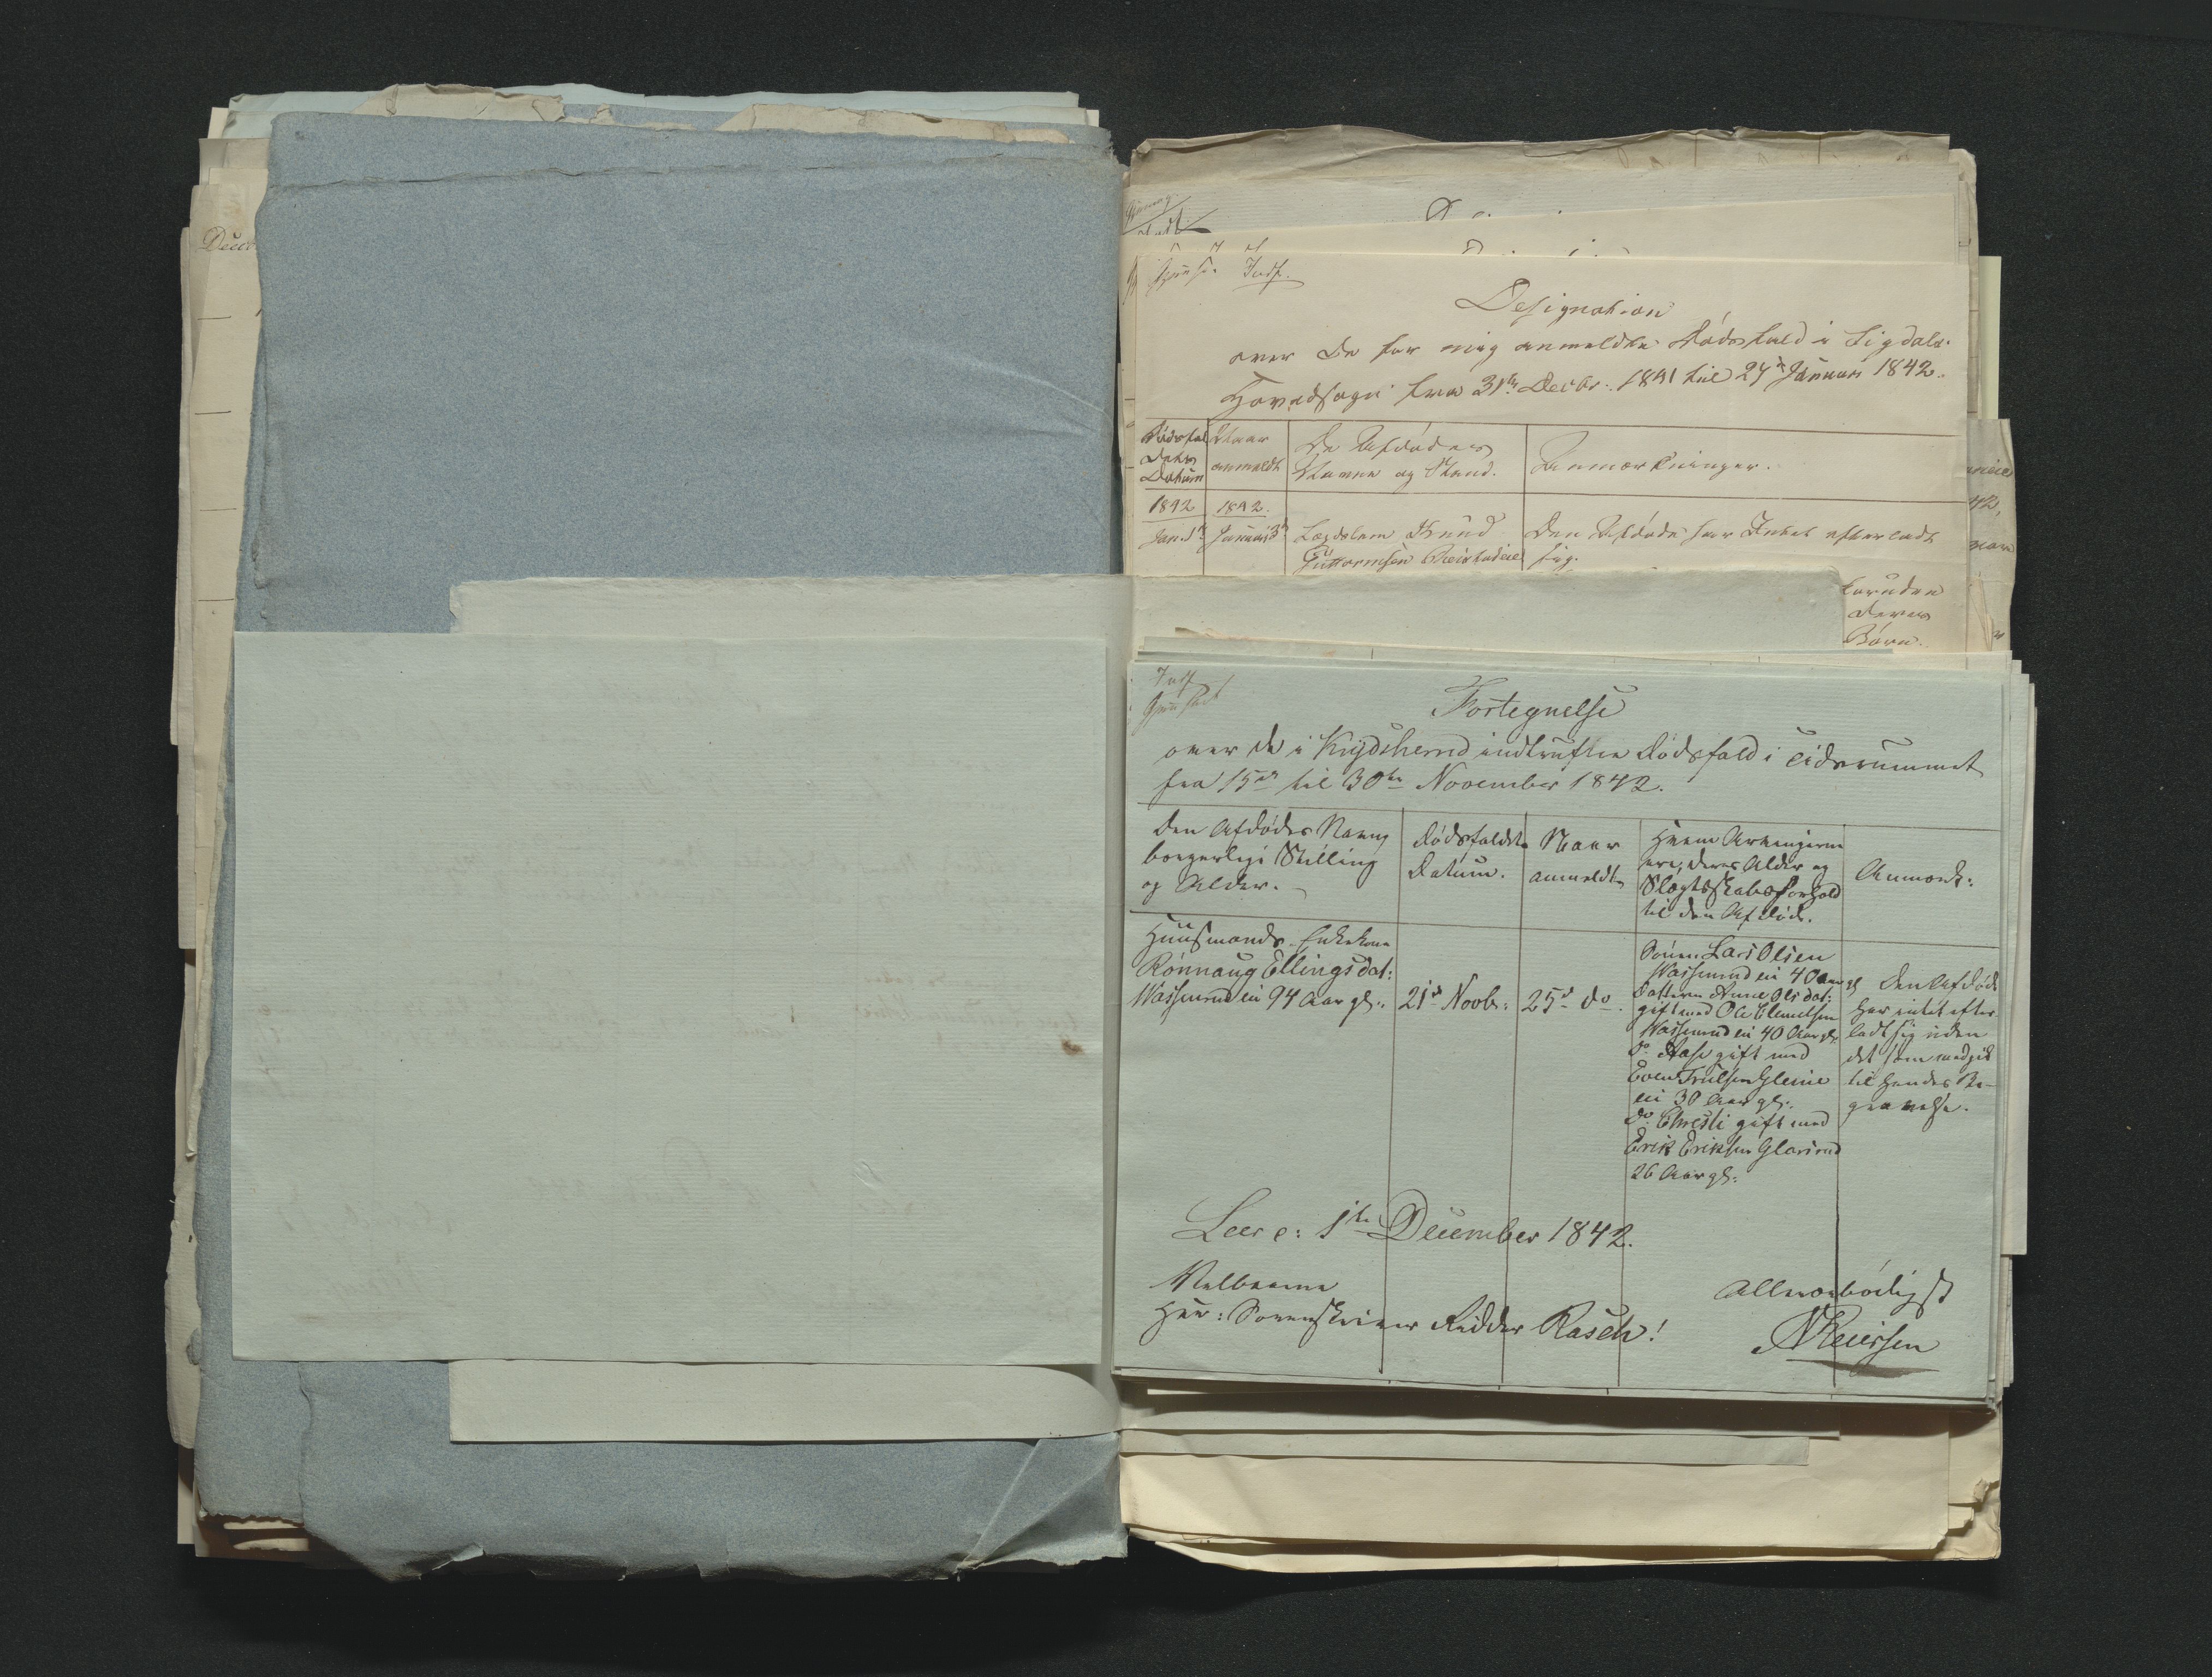 Decbr
Designation
over de for mig anmeldte Dødsfald i Sigdals
Hovedsogn fra 31te Decbr. 1841 til 27de Januari 1842.
Dødsfal
dets
Datum
Naar
anmeldt
De Afdødes
Navne og Stand.
Anmærkninger.
1842
1842.
Jan. 1te
Januari 3de
Lægdslem Knud
Guttormsen
Den Afdøde har Intet efterladt
sig.
foruden
deres
Børn.
Fortegnelse
over de i Krydsherred indtrufne Dødsfald i Tidsrummet
fra 15de til 30te November 1842.
Den Afdødes Navn,
borgerlige Stilling
og Alder.
Dødsfaldets
Datum.
Naar
anmeldt
Hvem Arvingerne
ere, deres Alder og
Slægtsskabsforhold
til den Afdøde.
Anmærk:
Huusmands Enkekone
Rønnaug Ellingsdat:
Wassenrud ei 94 Aar gl:.
21de Novbr:
25de do.
Sønnen Lars Olsen
Wassenrud ei 40 Aar gl
Datteren Anne Olsdat:
gift med Ole Clemetsen
Wassenrud ei 40 Aar gl:
Do. Aase gift med
Even Trulsen Glesne
ei 30 Aar gl:.
do. Christi gift med
Erik Eriksen Glaserud
26 Aar gl:.
Den Afdøde
har intet efter
ladt sig uden
det som medgik
til hendes Be-
gravelse.
Leer e: 1te December 1842.
Velbaarne
Herr: Sorenskriver Ridder Rasch!
Allerærbødigst
N Reiersen